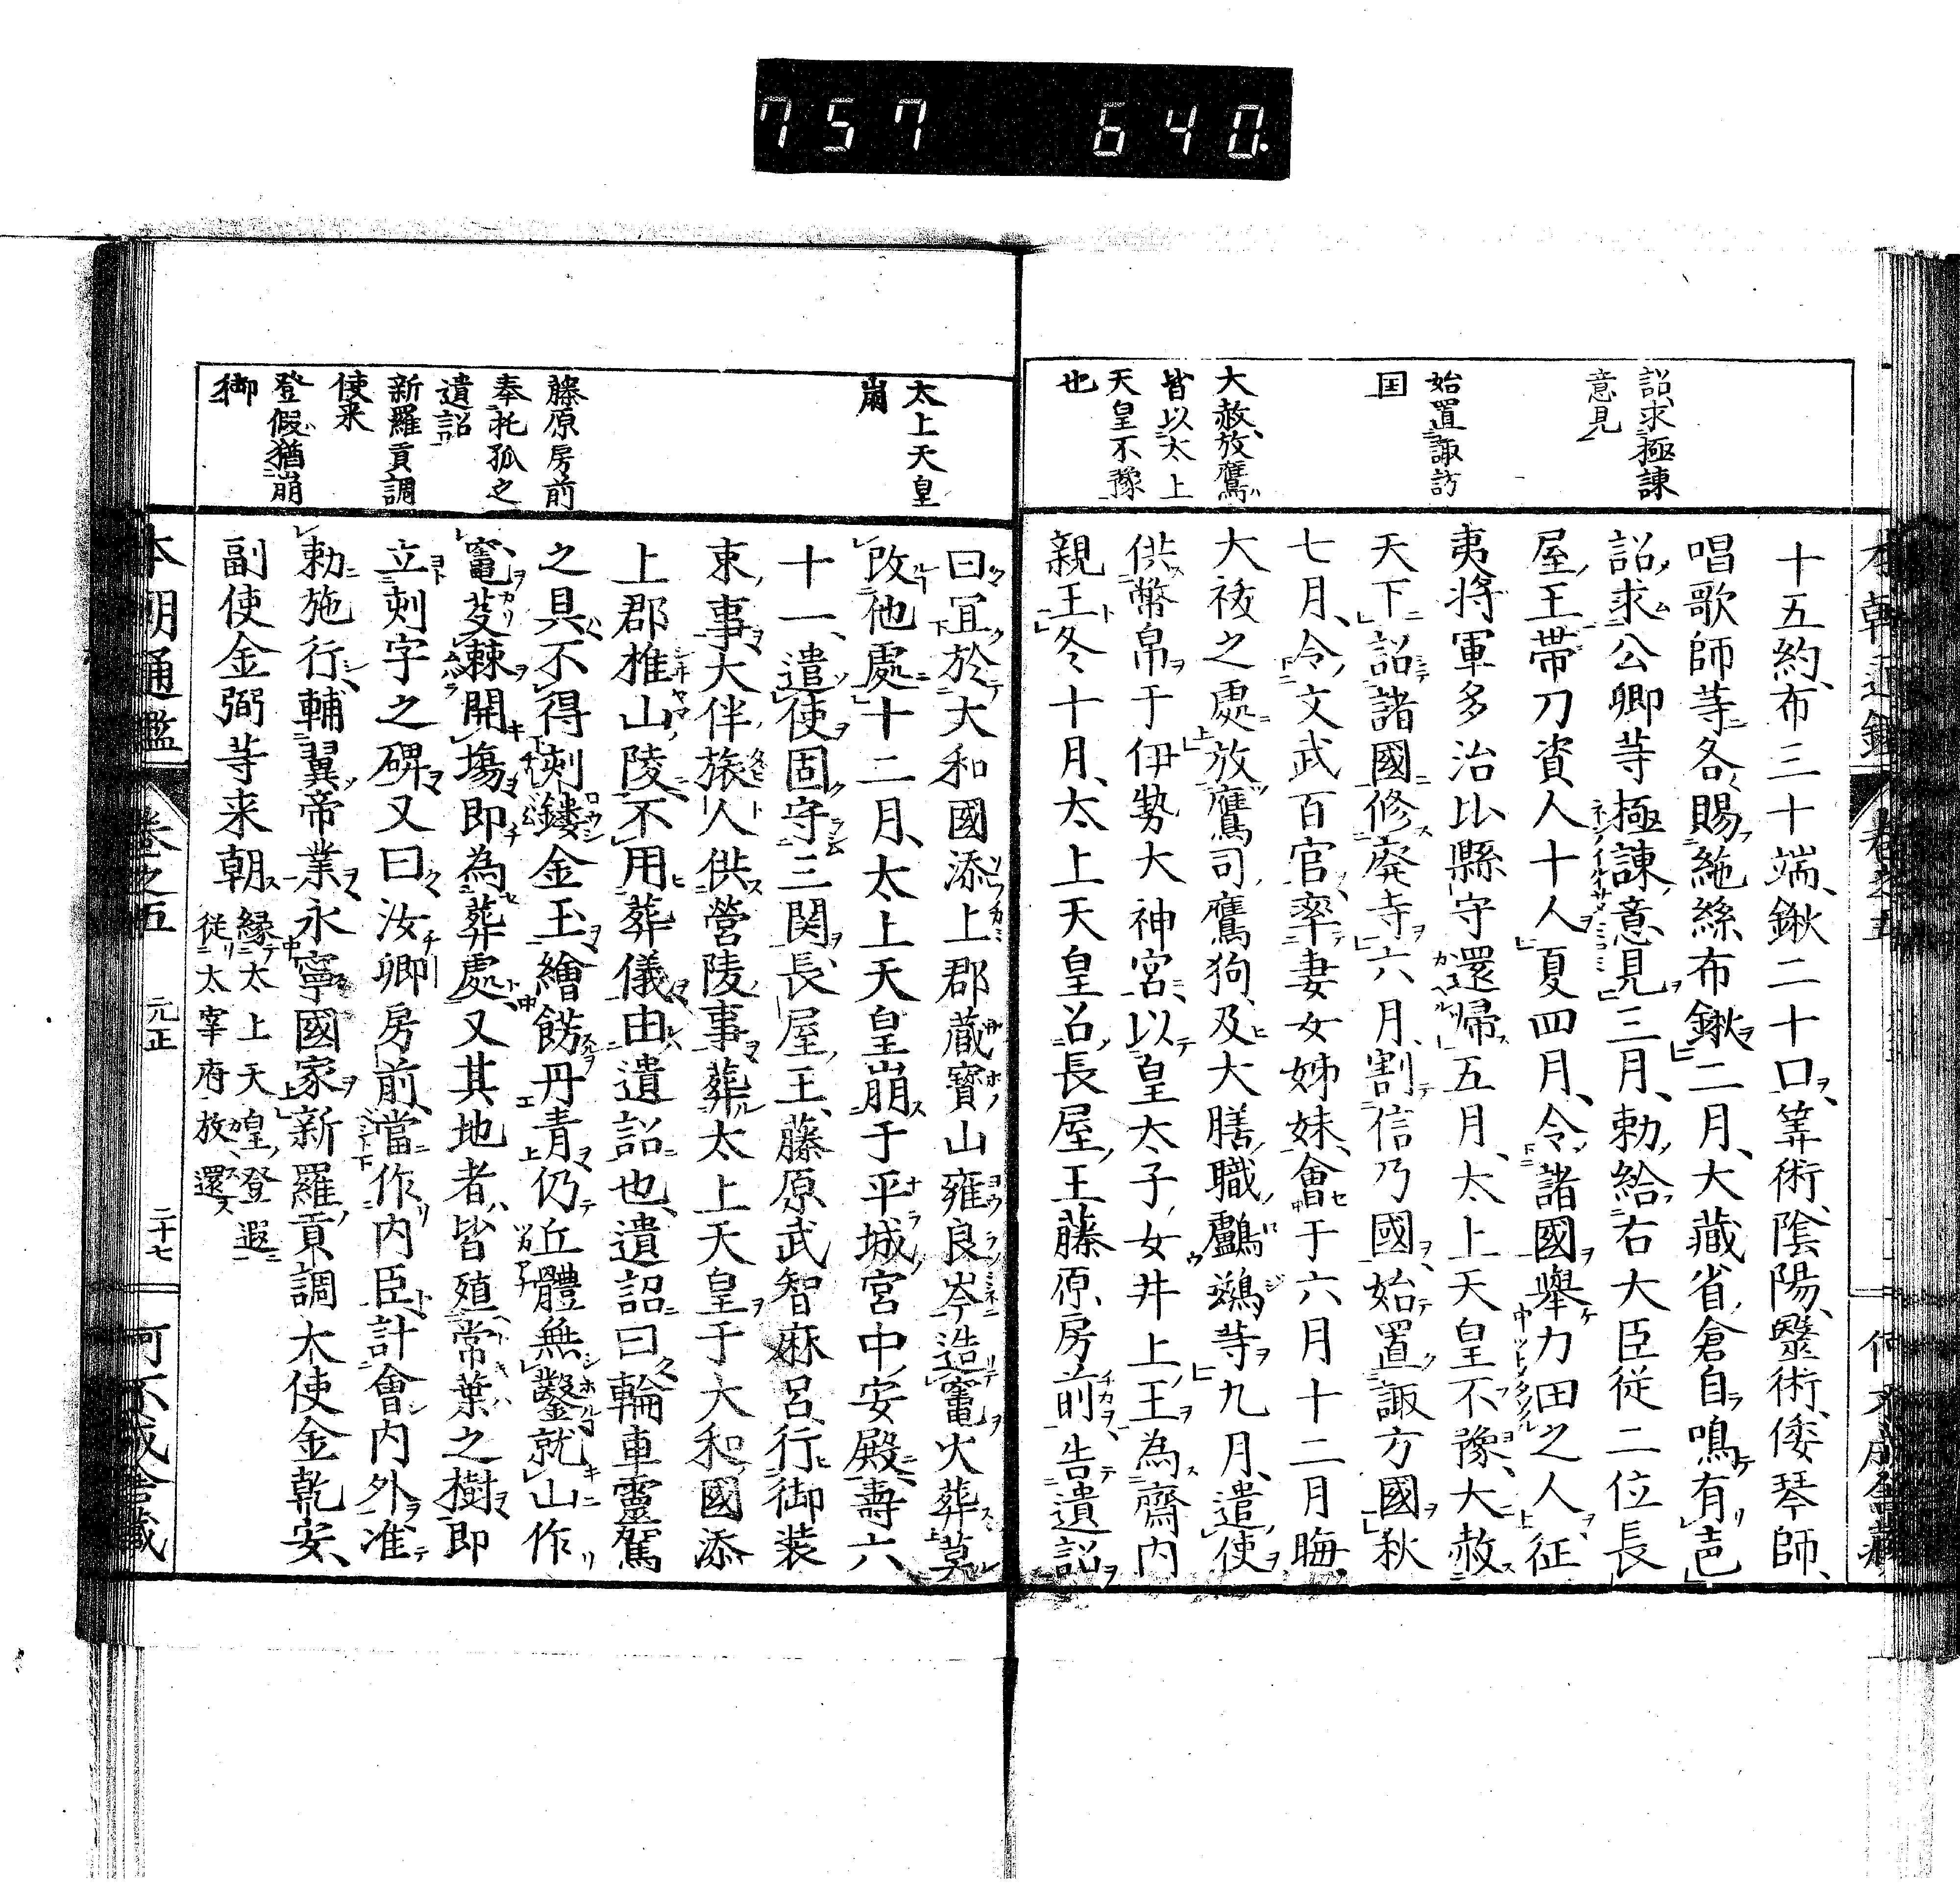 757 640.
詔求極諫
意見
始置諏訪
国
大赦放鷹
皆以太上
天皇不豫
也
十五約、布三十端、鍬二十口、筭術、陰陽、醫術、倭琴師、
唱歌師等各賜絁絲布鍬二月、大藏省倉自鳴有声
詔求公卿等極諫意見三月、勅給右大臣従二位長
屋王帶刀資人十人夏四月、令諸國舉力田之人征
夷将軍多治比縣守還帰五月、太上天皇不豫、大赦
天下詔諸國修廃寺六月、割信乃國始置諏方國秋
七月、令文武百官率妻女姊妹會于六月十二月晦
大祓之處放鷹司鷹狗、及大膳職鸕鷀等九月、遣使
供幣帛于伊㔟大神宮、以皇太子女井上王為齋内
親王冬十月、太上天皇召長屋王藤原房前告遺詔
太上天皇
崩
藤原房前
奉托孤之
遺詔
新羅貢調
使来
登假猶崩
御
曰冝於大和國添上郡蔵寳山雍良岑造竈火葬莫
改他處十二月、太上天皇崩于平城宮中安殿壽六
十一、遣使固守三関、長屋王、藤原武智麻呂、行御装
束事大伴旅人供營陵事葬太上天皇于大和國添
上郡椎山陵不用葬儀由遺詔也、遺詔曰輪車靈駕
之具不得刻鏤金玉、繪餝丹青仍丘體無鑿就山作
竈、芟棘開塲即為葬處又其地者、皆殖常葉之樹即
立刻字之碑又曰汝卿房前當作内臣、計會内外准
勅施行輔翼帝業永寧國家新羅貢調大使金乾安、
副使金弼等来朝
縁太上天皇登遐
従太宰府放還
本朝通鑑 卷之五 元正 二十七